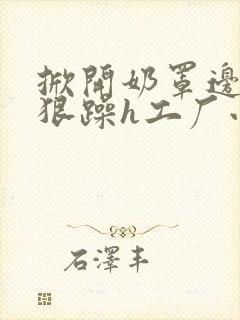 掀開奶罩邊
狠躁h工厂
石澤丰